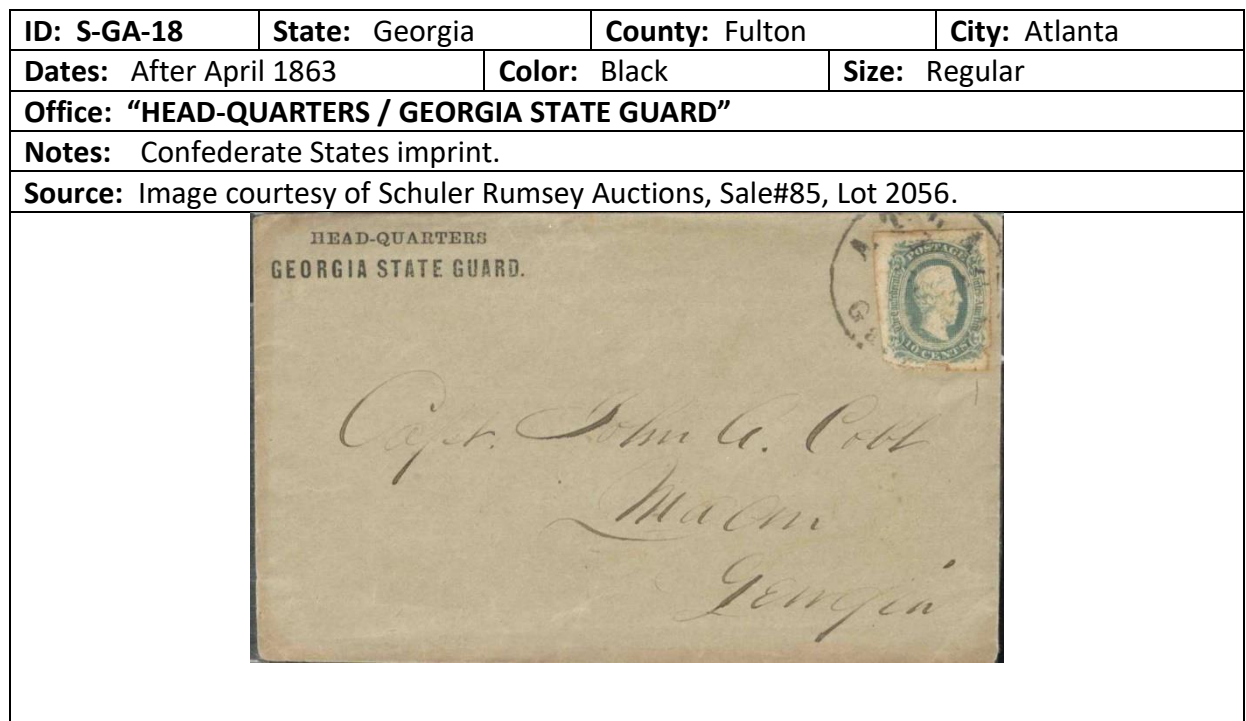 ID: S-GA-18 State: Georgia County: Fulton City: Atlanta
Dates: After April 1863 Color: Black Size: Regular
Office: “HEAD-QUARTERS / GEORGIA STATE GUARD”
Notes: Confederate States imprint.
Source: Image courtesy of Schuler Rumsey Auctions, Sale#85, Lot 2056.
HEAD-QUARTERS
GEORGIA STATE GUARD.
POSTAGE
10 CENTS
Ga
Capt. John A. Cobb
Macon
Georgia